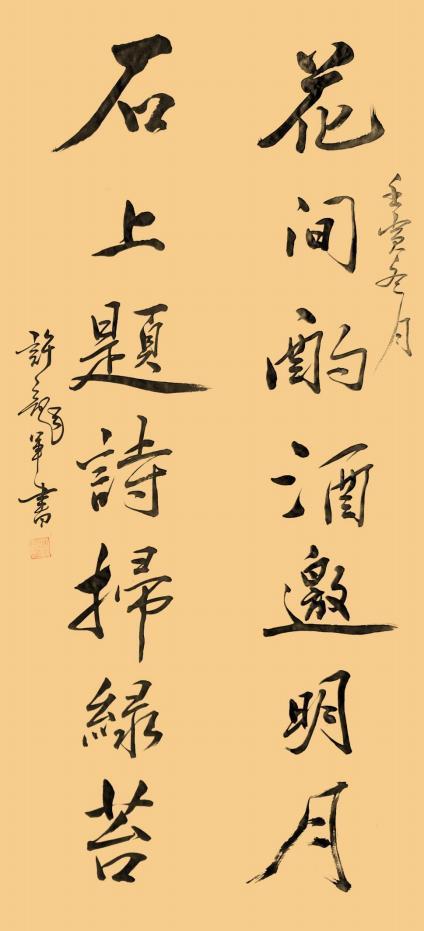 壬寅冬月
花间酌酒邀明月
石上題詩掃緑苔
許龍軍書